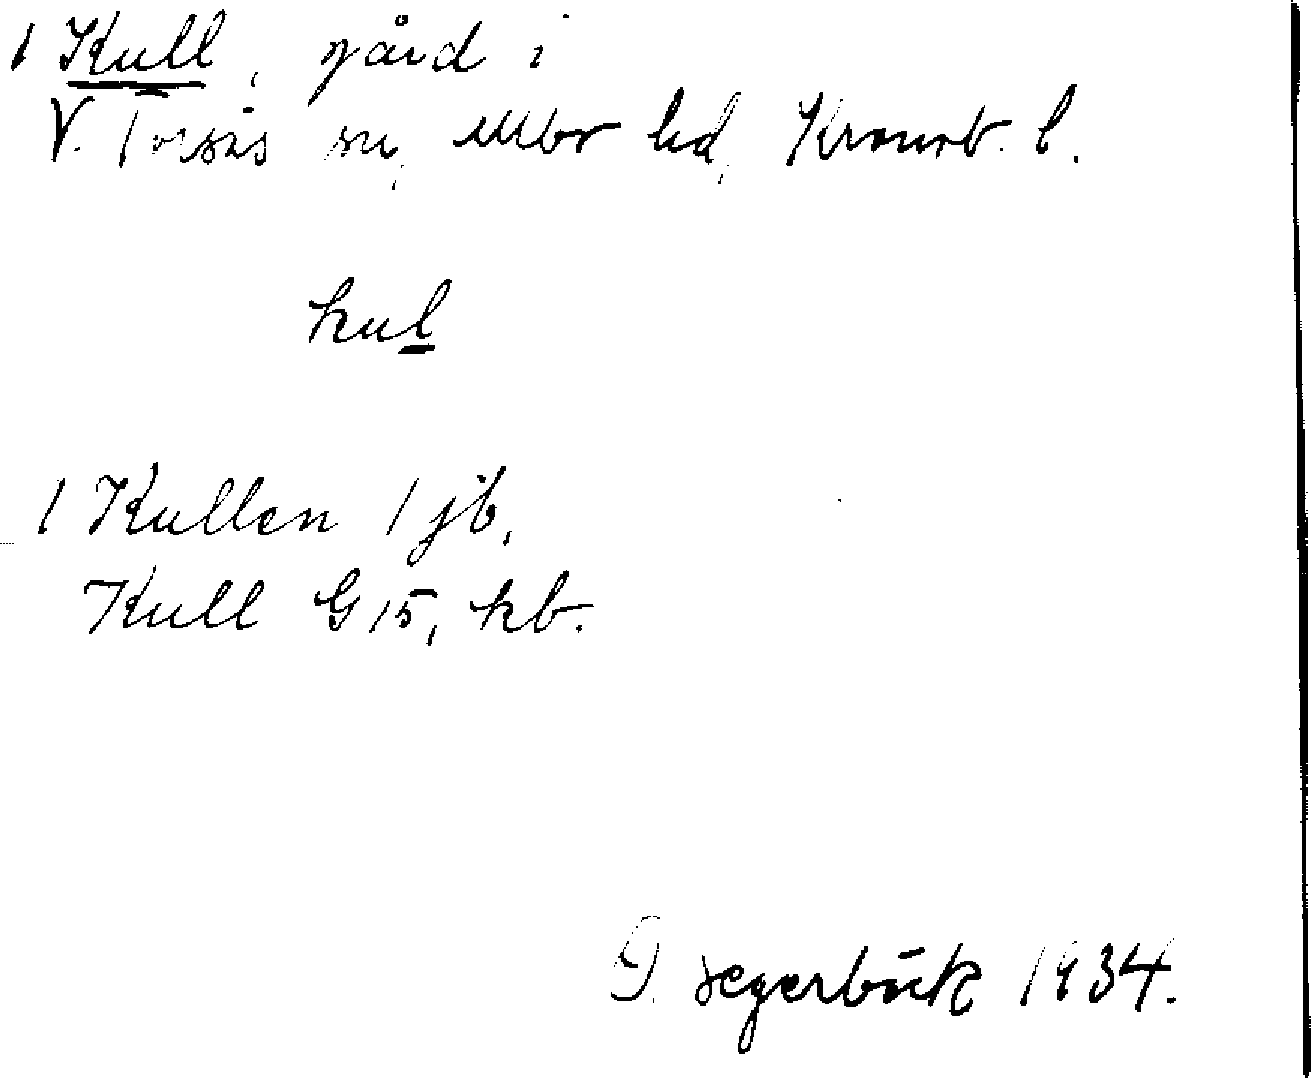 1 Kull, gård i
V. Torsås sn, Allbo hd, Kronob. l.
kul
1 Kullen 1 jb,
Kull G 15, kb.
G. Segerbäck 1934.